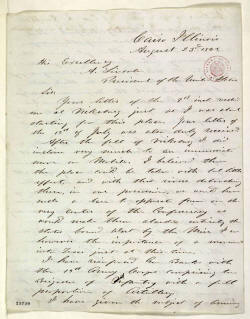 Cairo Illinois
August 23d 1863
His Excellency
A. Lincoln
President of the United States
Sir
Your letter of the 9th inst. reached
me at Vicksburg just as I was about
starting for this place. Your letter of
the 13th of July was also duly received
After the fall of Vicksburg I did
incline very much to an immediate
move on Mobile. I believed then
the place could be taken with but little
effort, and with the rivers debouching
there, in our possession, we would have
such a base to operate from on the
very center of the Confederacy as
would make them abandon entirely the
states bound west by the Miss. I see
however the importance of a movement
into Texas just at this time.
I have reinforced Gen. Banks with
the 13th Army Corps comprising ten
Brigades of Infantry with a full
proportion of Artillery.
I have given the subject of arming